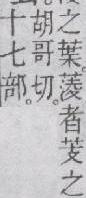 之葉。蔆者芰之
胡哥切。
十七部。